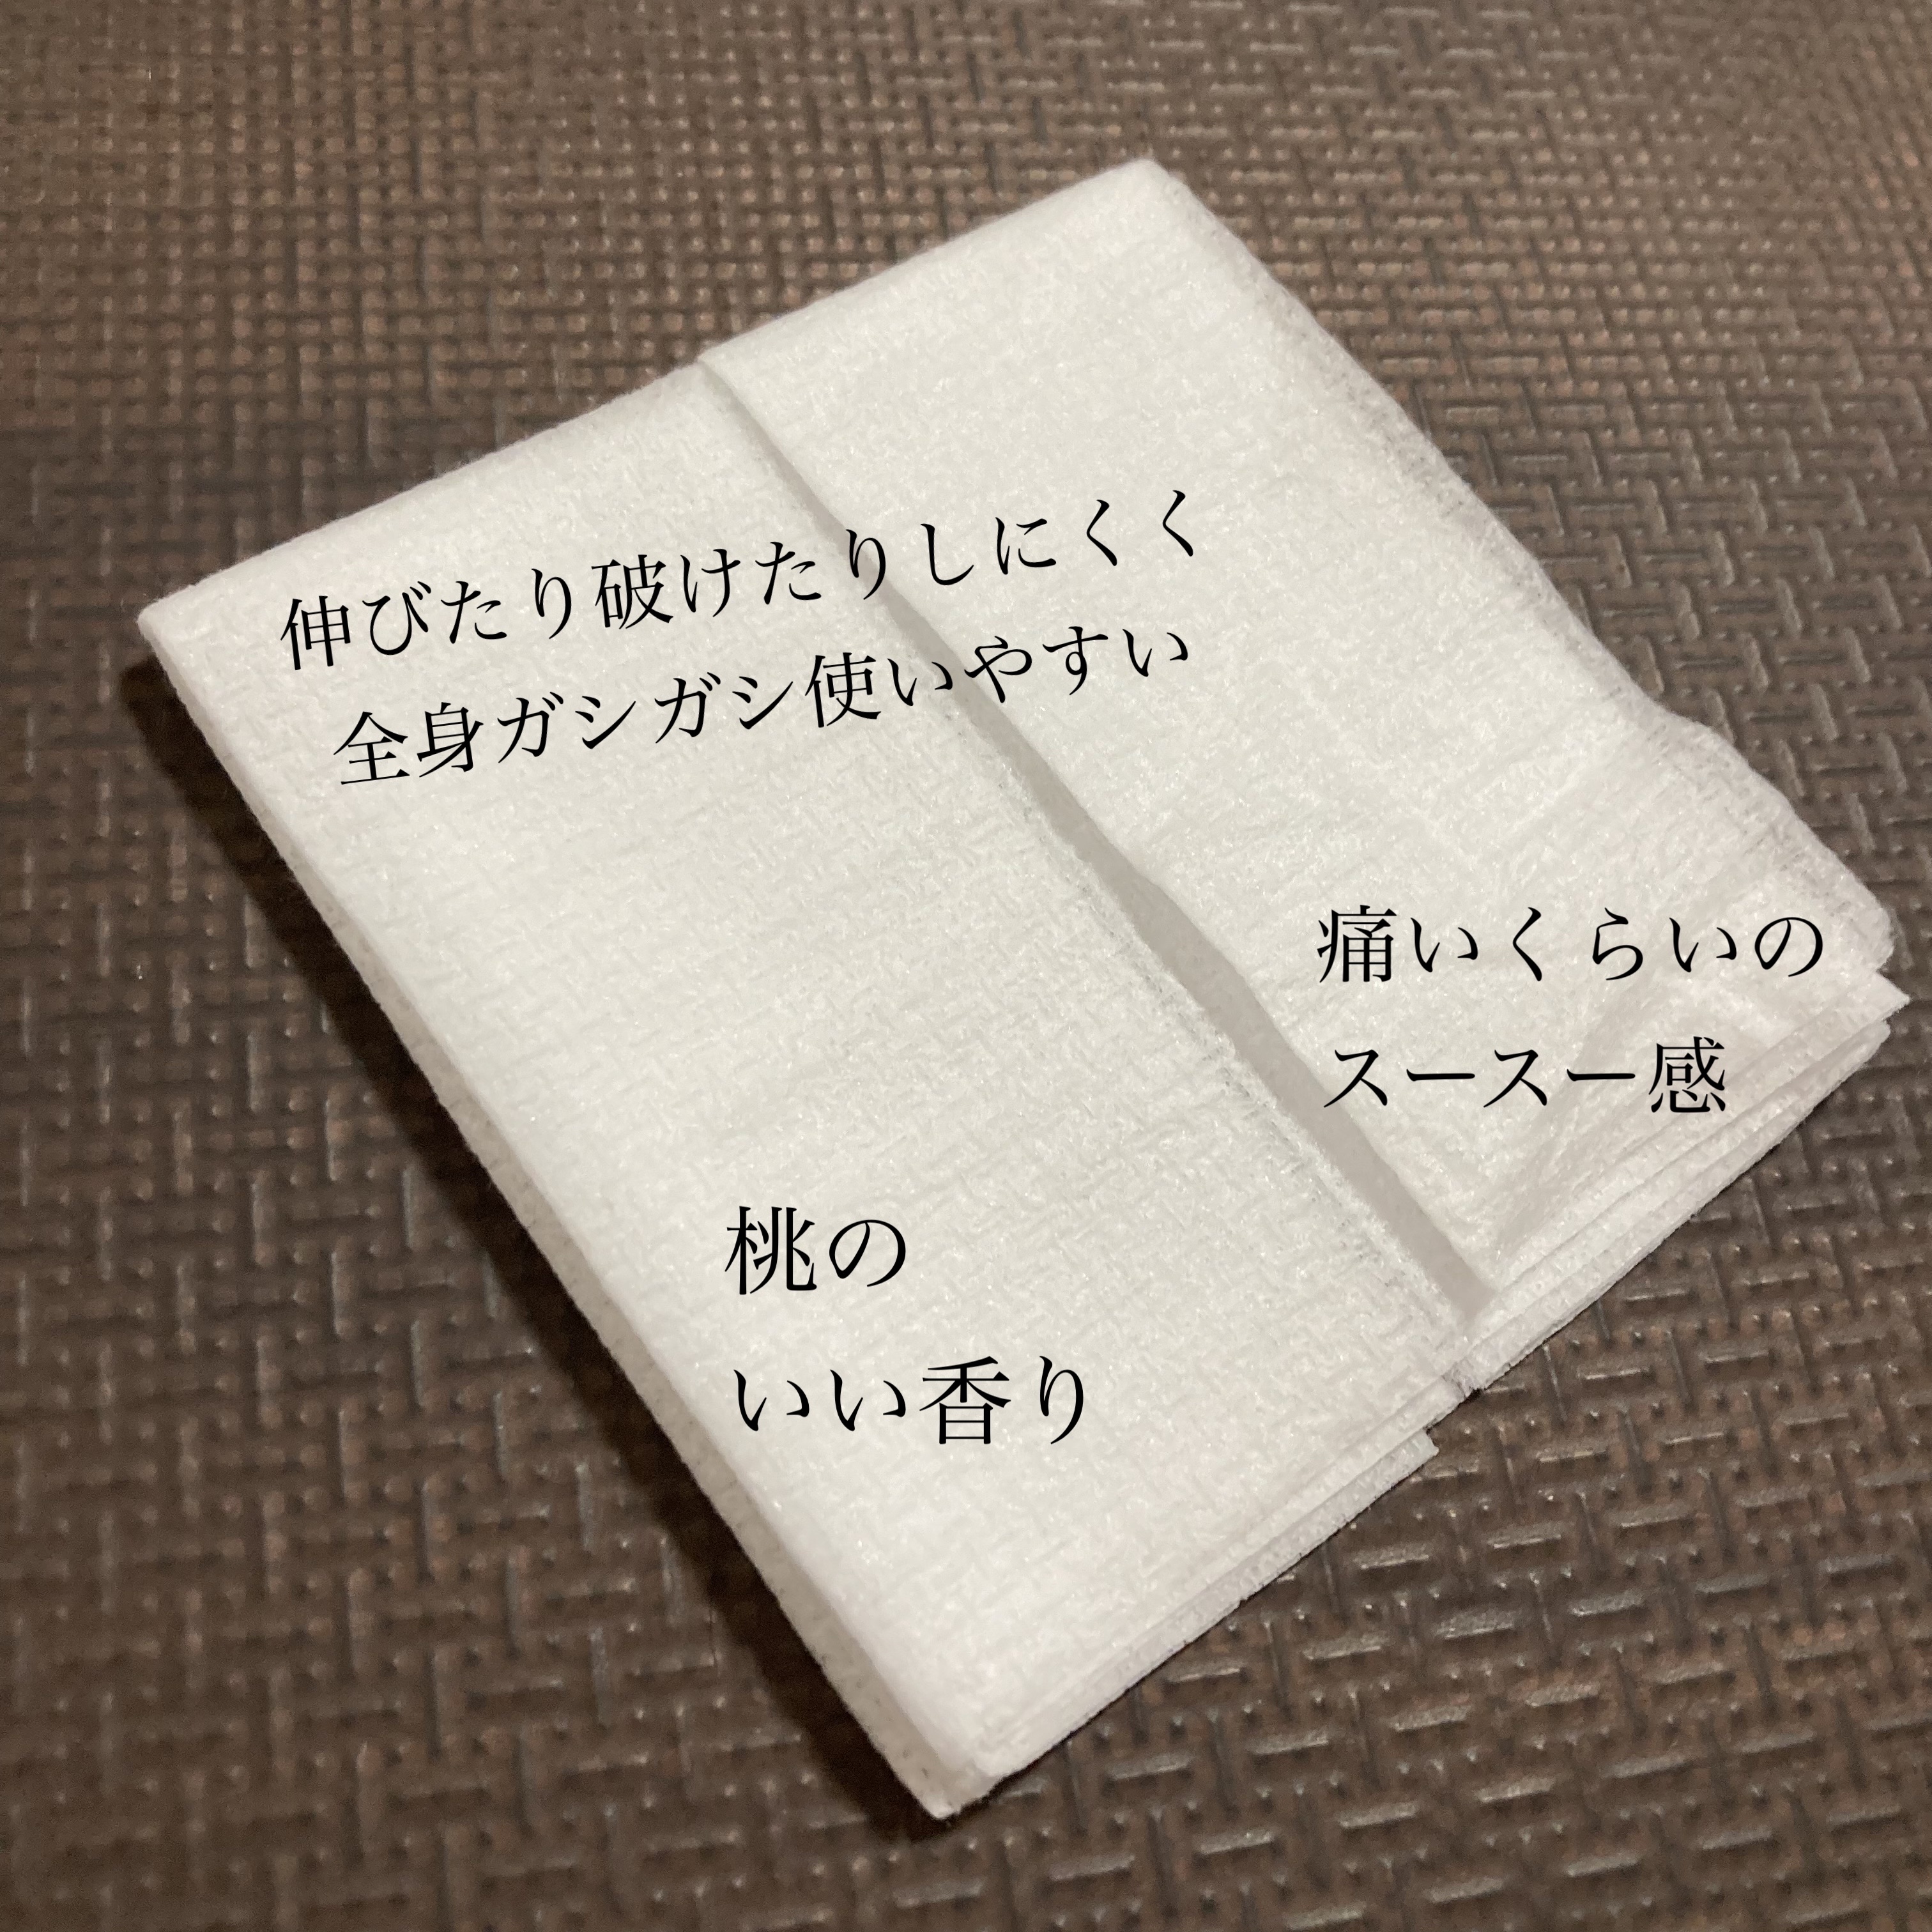 伸びたり破けたりしにくく
全身ガシガシ使いやすい
痛いくらいの
スースー感
桃の
いい香り